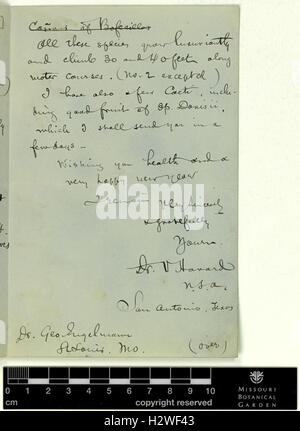 Cañons of Bofecillos
All these species grow luxuriantly
and climb 30 and 40 feet along
water courses. (No. 2 excepted)
I have also a few Cacti, inclu-
ding good fruit of Sp. Davisii,
which I shall send you in a
few days —
Wishing you health and a
very happy new year
I remain Very sincerely
& gratefully
Yours.
Dr. V. Havard
U.S.A.
San Antonio, Texas
Dr. Geo. Engelmann
St Louis, Mo.
(over)
alamy
cm 1 2 3 4 5 6 7 8 9 10
copyright reserved
MISSOURI
BOTANICAL
GARDEN
alamy stock photo
H2WF43
www.alamy.com